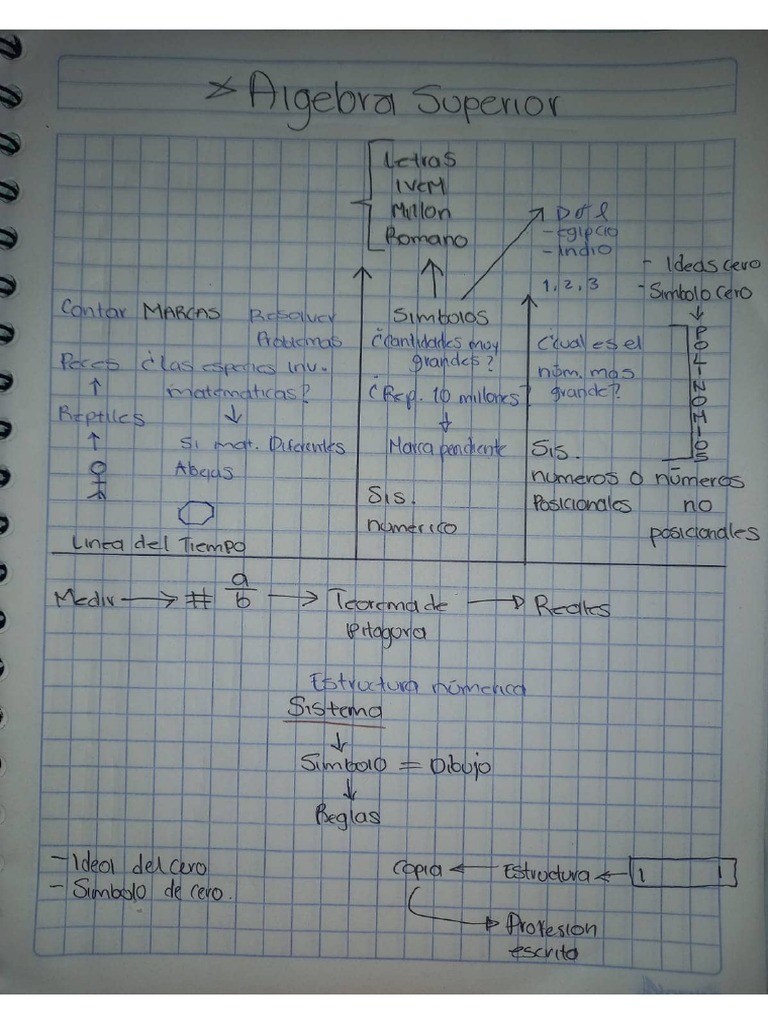 * Algebra Superior
Letras
IVCM
Millon
Romano
- Egipcio
- Indio
1, 2, 3
- Ideas cero
- Simbolo cero
Contar MARCAS Resolver
Problemas
Peces ¿las especies inv.
matematicas?
Reptiles
Si mat. Diferentes
Abejas
Linea del Tiempo
Simbolos
¿Cantidades muy
grandes?
¿Rep. 10 millones?
Marca pendiente
Sis.
numerico
¿Cual es el
núm. mas
grande?
Sis.
numeros o números
Posicionales no
posicionales
Medir → # a/b → Teorema de → Reales
Pitagora
Estructura númerica
Sistema
Simbolo = Dibujo
Reglas
- Ideal del cero
- Simbolo de cero.
Copia ← Estructura ← 1 1
Profesion
escrito